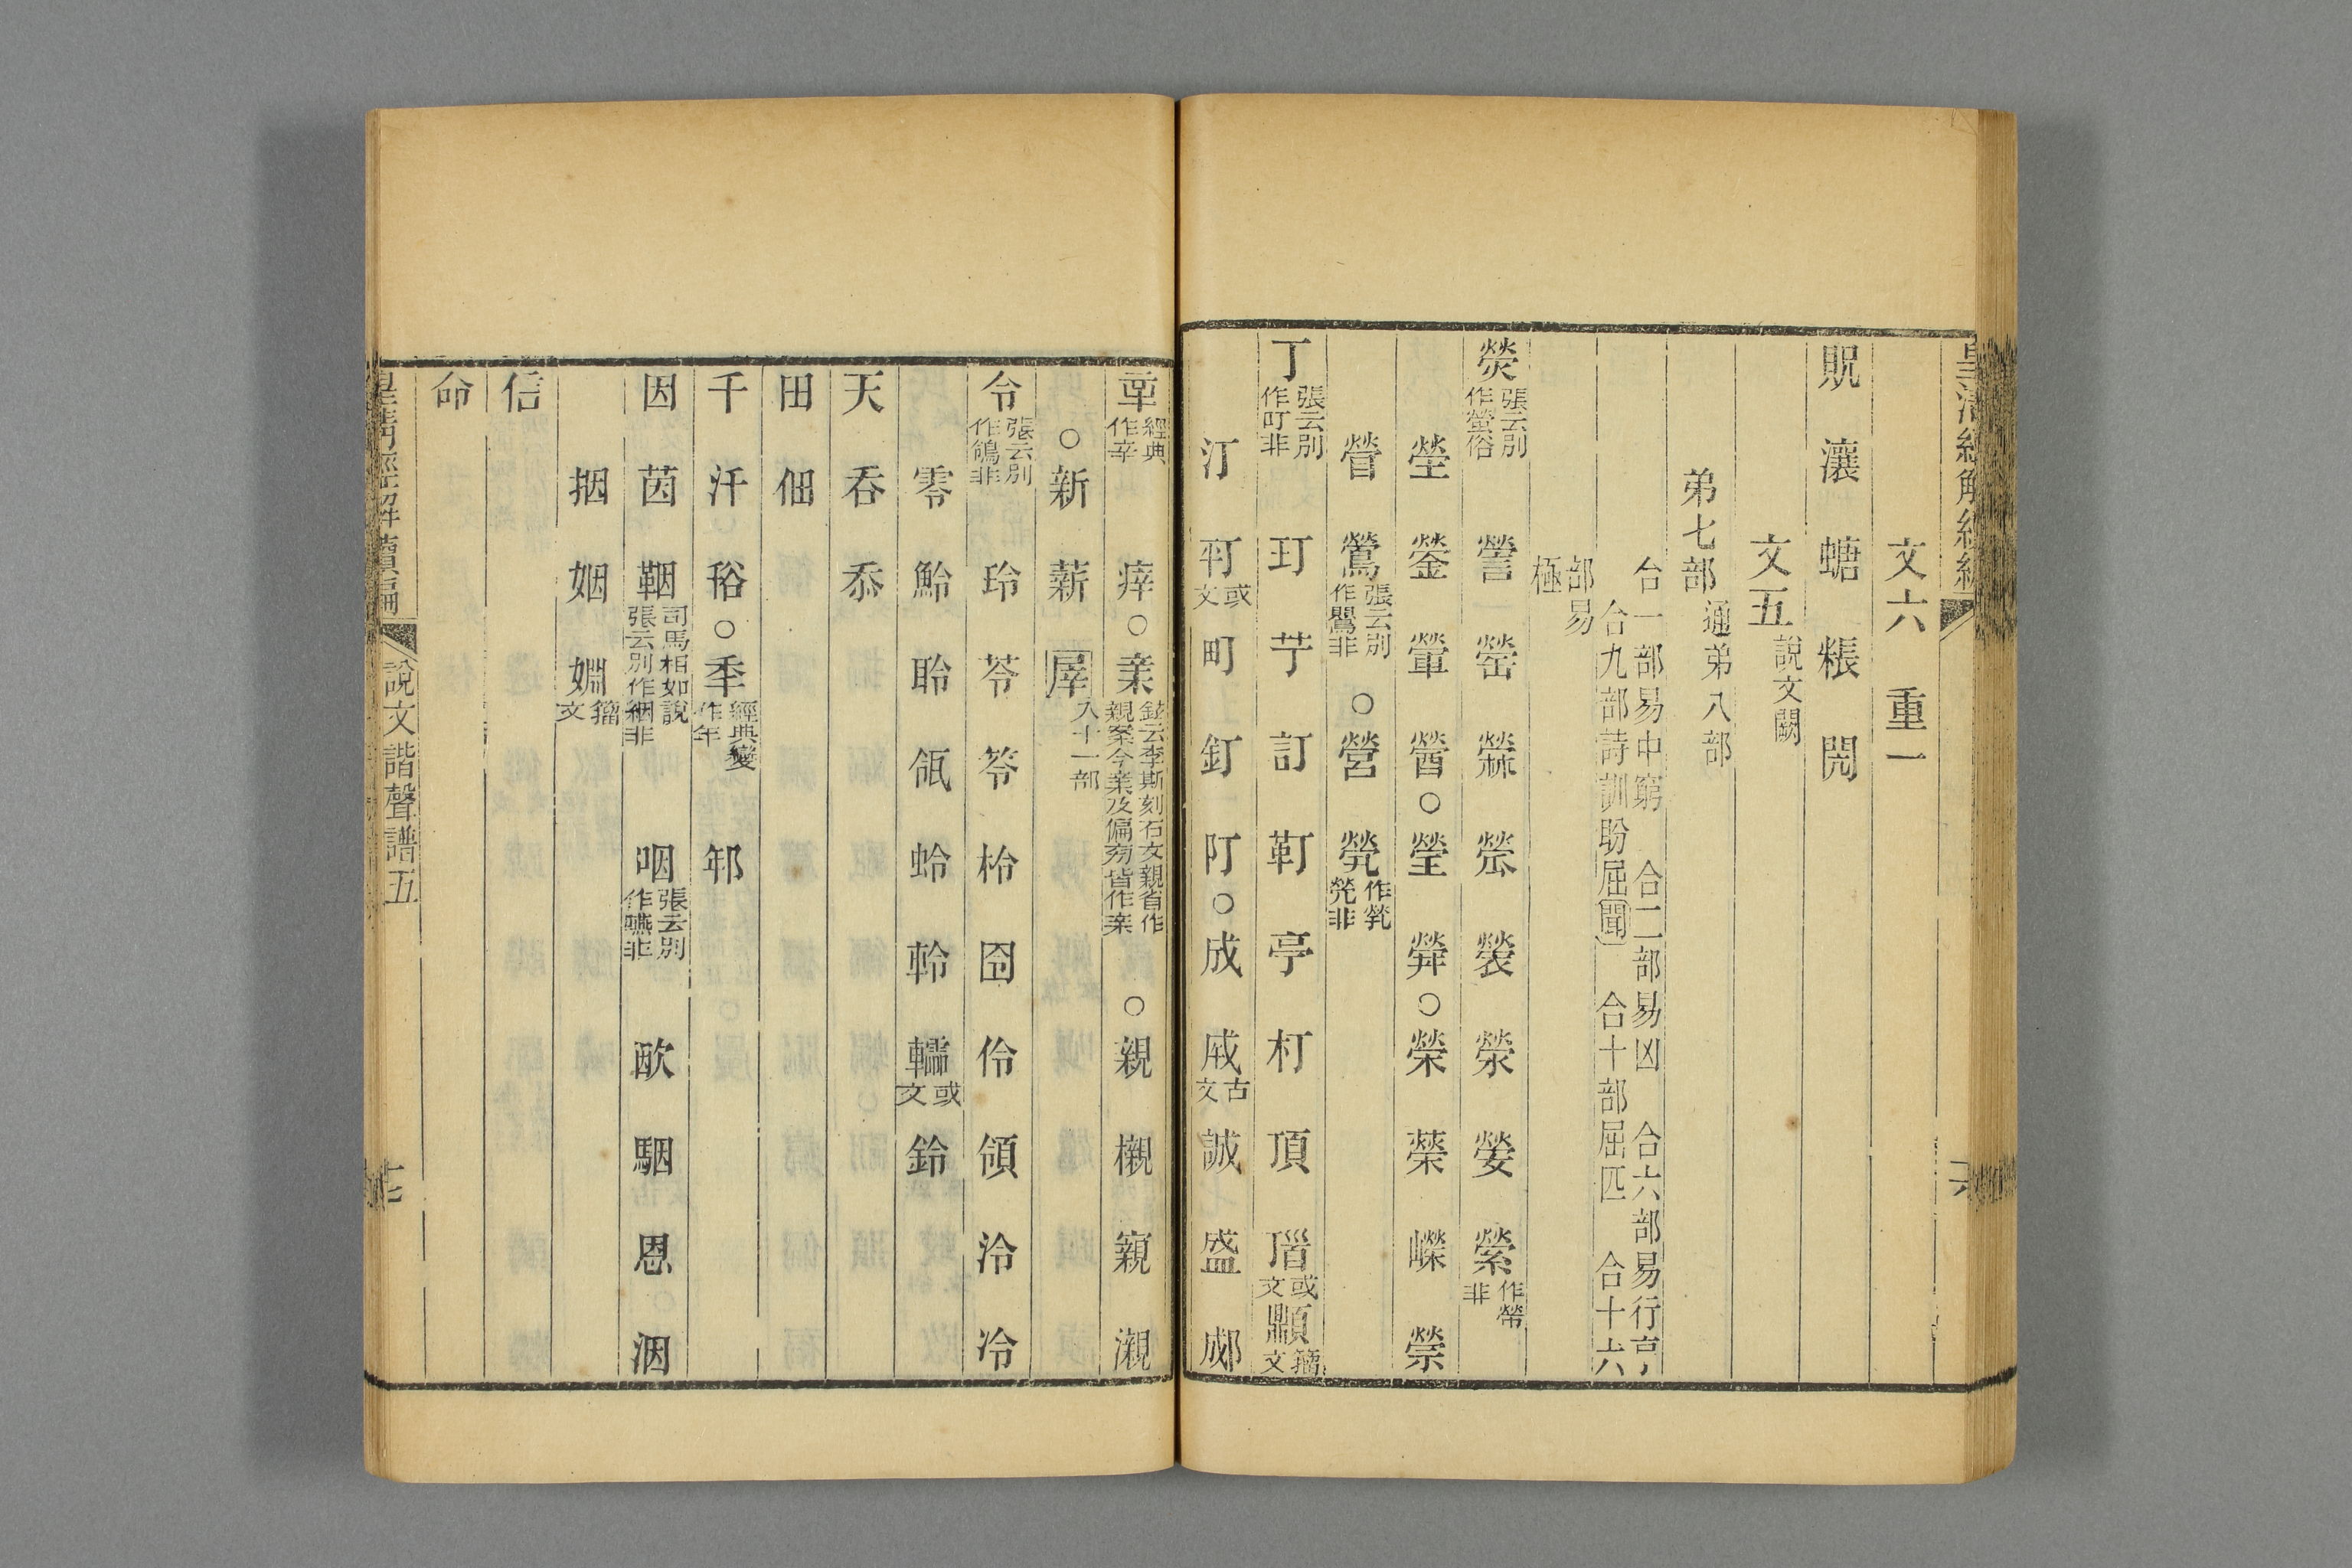 皇清經解續編
文六　重一
貺　瀼　螗　粻　閌
文五說文闕
弟七部通弟八部
合一部易中窮　合二部易凶　合六部易行亨
合九部詩訓盼屈聞　合十部屈匹　合十六
部易
極
熒張云別作螢俗　謍　罃　𦁨　褮　滎　嫈　縈作㡏非
塋　鎣　䡝　醟○瑩　𤯵○榮　蓥　嶸　禜
䁝　鶯張云別作鸎非　○營　煢作煢非
丁張云別作叮非　玎　芋　訂　靪　亭　朾　頂　𩠑或文　顁籀文
汀　𠀾或文　町　釘　阠○成　戚古文　誠　盛　郕
辛經典作辛　痒○亲鉉云李斯刻石文親省作親案今亲及偏旁皆作亲　○親　櫬　寴　瀙
○新　薪　㞕入十一部
令張云別作鴒非　玲　苓　笭　柃　囹　伶　領　泠　冷
零　魿　聆　瓴　蛉　軨　轜或文　鈴
天　吞　忝
田　佃
千　汘　䄹○秊經典變作年　邾
因　茵　鞇司馬相如說張云別作絪非　咽張云別作嚥非　㰲　駰　恩　洇
捆　姻　婣籀文
信
命
皇清經解續編　說文諧聲譜五